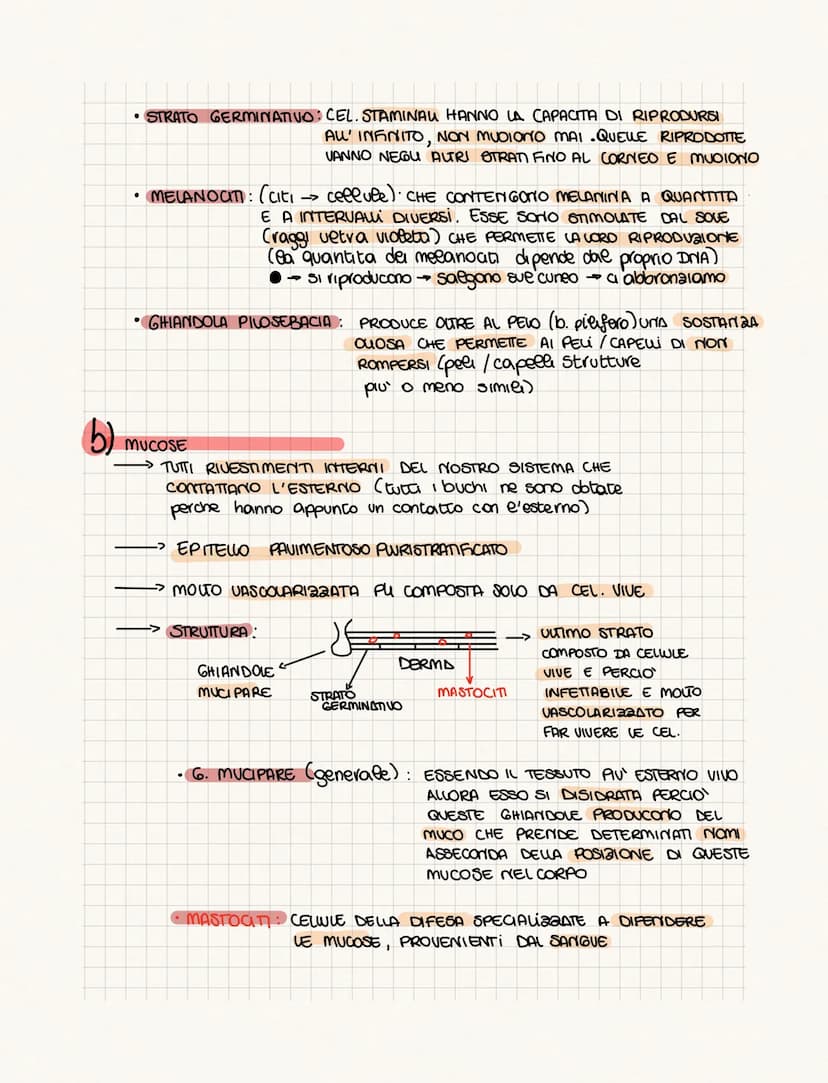 • STRATO GERMINATIVO: CEL. STAMINALI HANNO LA CAPACITA DI RIPRODURSI
ALL' INFINITO, NON MUOIONO MAI. QUELLE RIPRODOTTE
VANNO NEGLI ALTRI STRATI FINO AL CORNEO E MUOIONO
• MELANOCITI: (citi → cellule) CHE CONTENGONO MELANINA A QUANTITA
E A INTERVALLI DIVERSI. ESSE SONO STIMOLATE DAL SOLE
(raggi ultra violetti) CHE PERMETTE LA LORO RIPRODUZIONE
(la quantita dei melanociti dipende dal proprio DNA)
● → si riproducono → salgono sul cuneo → ci abbronziamo
• GHIANDOLA PILOSEBACIA: PRODUCE OLTRE AL PELO (b. pilifero) UNA SOSTANZA
OLIOSA CHE PERMETTE AI PELI / CAPELLI DI NON
ROMPERSI (peli / capelli strutture
piu' o meno simili)
b) MUCOSE
→ TUTTI RIVESTIMENTI INTERNI DEL NOSTRO SISTEMA CHE
CONTATTANO L'ESTERNO (tutti i buchi ne sono dotate
perche hanno appunto un contatto con l'esterno)
→ EPITELLO PAVIMENTOSO PLURISTRATIFICATO
→ MOLTO VASCOLARIZZATA PU COMPOSTA SOLO DA CEL. VIVE
→ STRUTTURA:
GHIANDOLE
MUCIPARE
STRATO
GERMINATIVO
DERMA
MASTOCITI
→ ULTIMO STRATO
COMPOSTO DA CELLULE
VIVE E PERCIO'
INFETTABILE E MOLTO
VASCOLARIZZATO PER
FAR VIVERE LE CEL.
• G. MUCIPARE (generale): ESSENDO IL TESSUTO PIU' ESTERNO VIVO
ALLORA ESSO SI DISIDRATA PERCIO'
QUESTE GHIANDOLE PRODUCONO DEL
MUCO CHE PRENDE DETERMINATI NOMI
ASSECONDA DELLA POSIZIONE DI QUESTE
MUCOSE NEL CORPO
• MASTOCITI: CELLULE DELLA DIFESA SPECIALIZZATE A DIFENDERE
LE MUCOSE, PROVENIENTI DAL SANGUE